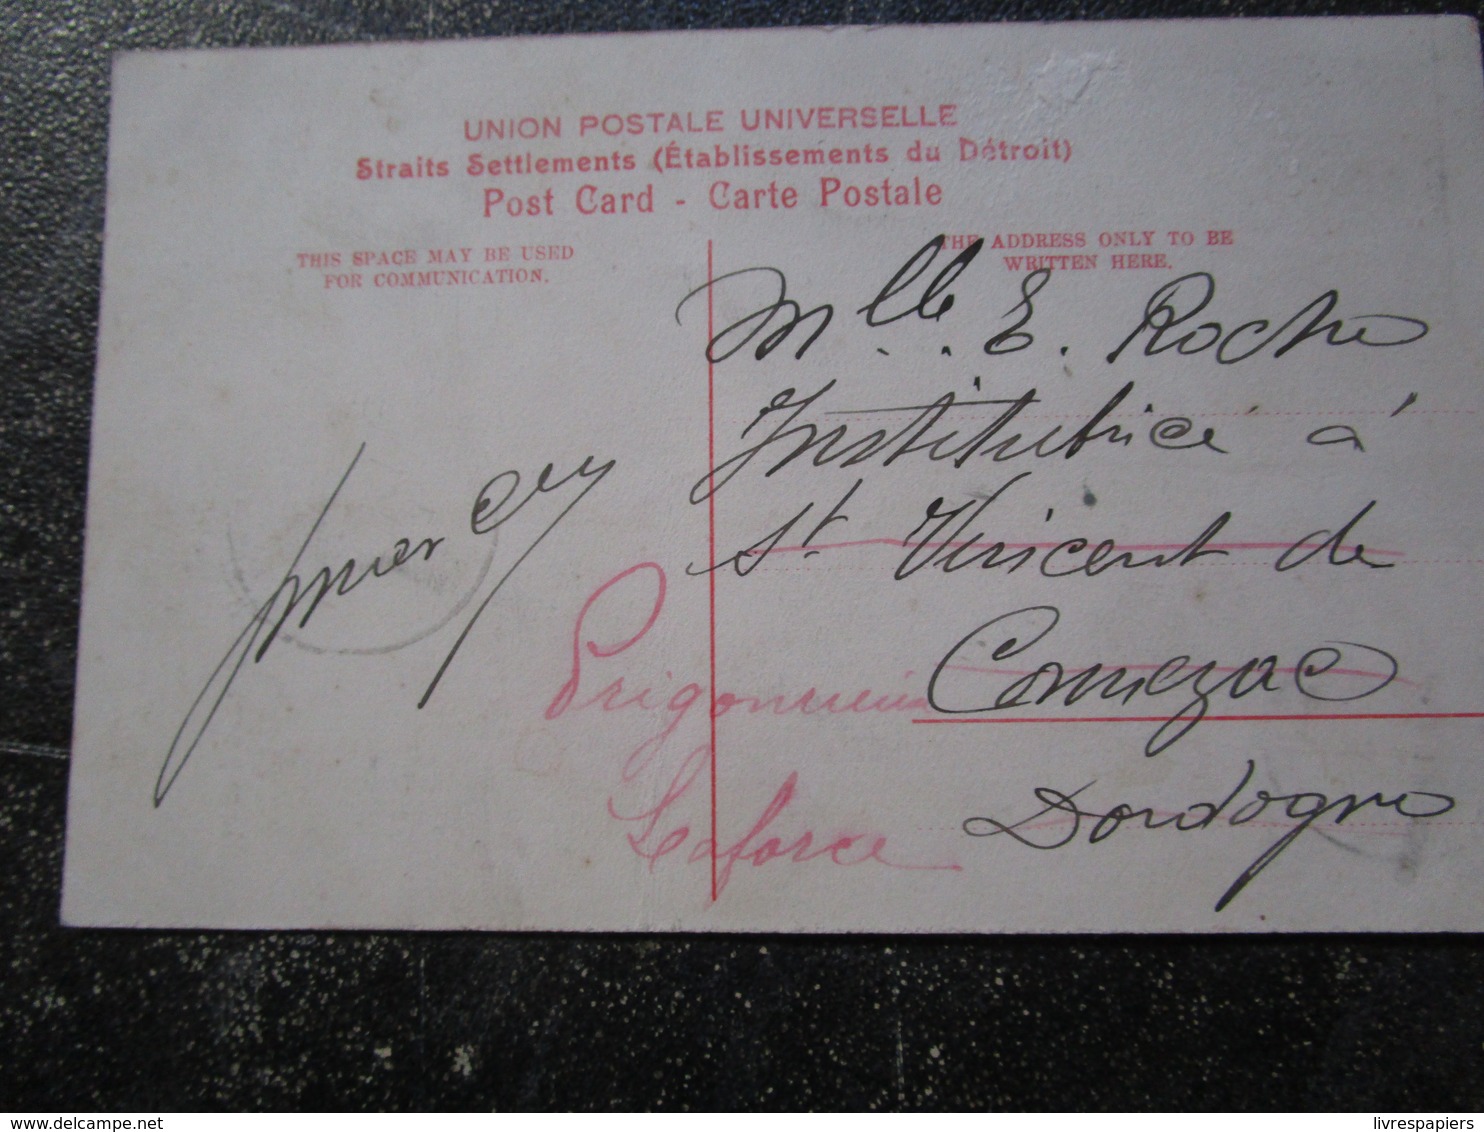 UNION POSTALE UNIVERSELLE
Straits Settlements (Établissements du Détroit)
Post Card - Carte Postale
THIS SPACE MAY BE USED
FOR COMMUNICATION.
THE ADDRESS ONLY TO BE
WRITTEN HERE.
Mlle E. Roche
Institutrice à
St Vincent de
Connezac
Dordogne
Prigonrieux
Laforce
livrespapiers